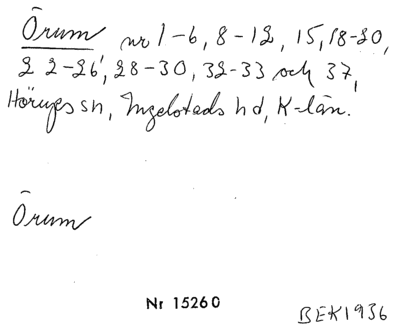 Örum nr 1-6, 8-12, 15, 18-20,
22-26, 28-30, 32-33 och 37,
Hörups sn, Ingelstads hd, K-län.
Örum
Nr 15260
BEK1936